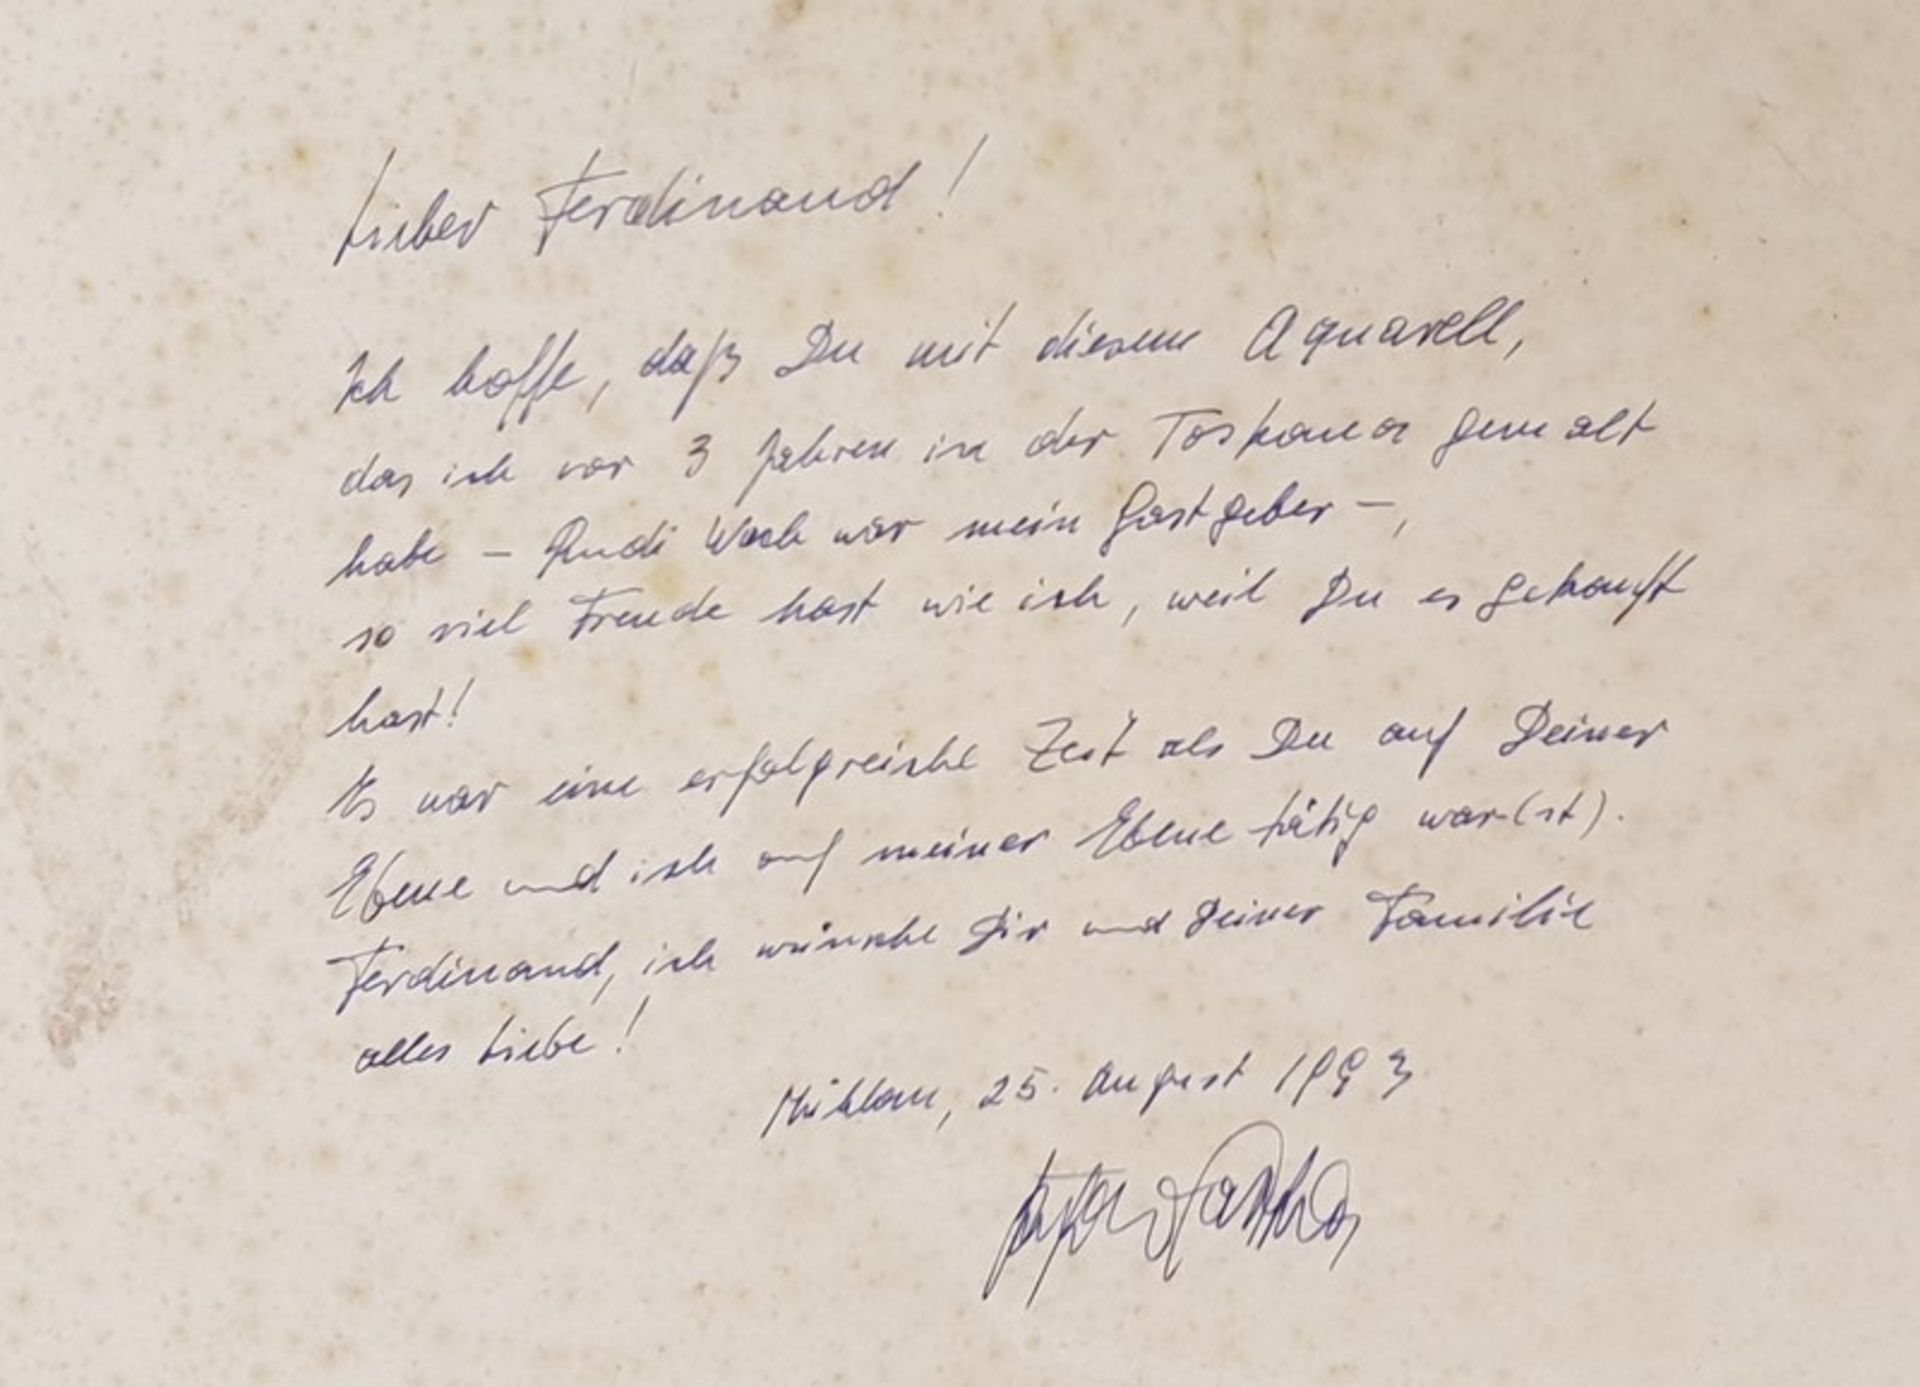 Lieber Ferdinand!
Ich hoffe, daß Du mit diesem Aquarell,
das ich vor 3 Jahren in der Toskana gemalt
habe – Rudi Wach war mein Gastgeber –,
so viel Freude hast wie ich, weil Du es gekauft
hast!
Es war eine erfolgreiche Zeit als Du auf Deiner
Ebene und ich auf meiner Ebene tätig war(st).
Ferdinand, ich wünsche Dir und Deiner Familie
alles Liebe!
Mühlau, 25. August 1993